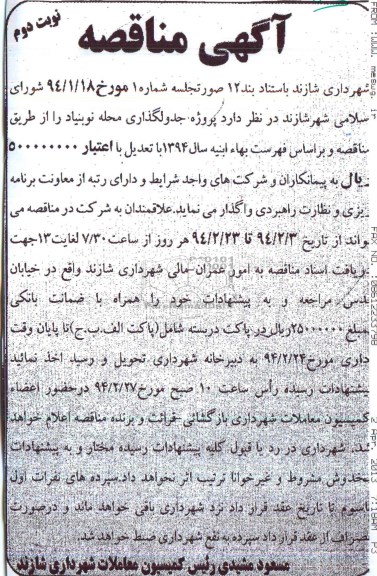 نوبت دوم
آگهی مناقصه
شهرداری شازند باستناد بند۱۲ صورتجلسه شماره۱ مورخ۹۴/۱/۱۸ شورای
اسلامی شهرشازند در نظر دارد پروژه جدولگذاری محله نوبنیاد را از طریق
مناقصه و براساس فهرست بهاء ابنیه سال۱۳۹۴با تعدیل با اعتبار ۵۰۰۰۰۰۰۰۰
ریال به پیمانکاران و شرکت های واجد شرایط و دارای رتبه از معاونت برنامه
ریزی و نظارت راهبردی واگذار می نماید.علاقمندان به شرکت در مناقصه می
تواند از تاریخ ۹۴/۲/۳ تا ۹۴/۲/۲۳ هر روز از ساعت۷/۳۰ لغایت۱۳جهت
دریافت اسناد مناقصه به امور عمران-مالی شهرداری شازند واقع در خیابان
قدس مراجعه و به پیشنهادات خود را همراه با ضمانت بانکی
بمبلغ۲۵۰۰۰۰۰۰ریال‌در پاکت دربسته شامل(پاکت الف.ب.ج)تا پایان وقت
اداری مورخ۹۴/۲/۲۴ به دبیرخانه شهرداری تحویل و رسید اخذ نمائید
پیشنهادات رسیده رأس ساعت ۱۰ صبح مورخ۹۴/۲/۲۷ درحضور اعضاء
کمیسیون معاملات شهرداری بازگشائی-قرائت و برنده مناقصه اعلام خواهد
شد. شهرداری در رد یا قبول کلیه پیشنهادات رسیده مختار و به پیشنهادات
مخدوش مشروط و غیرخوانا ترتیب اثر نخواهد داد.سپرده های نفرات اول
تاسوم تا تاریخ عقد قرار داد نزد شهرداری باقی خواهد ماند و درصورت
انصراف از عقد قرار داد سپرده به نفع شهرداری ضبط خواهد شد.
مسعود مشیدی رئیس کمیسیون معاملات شهرداری شازند